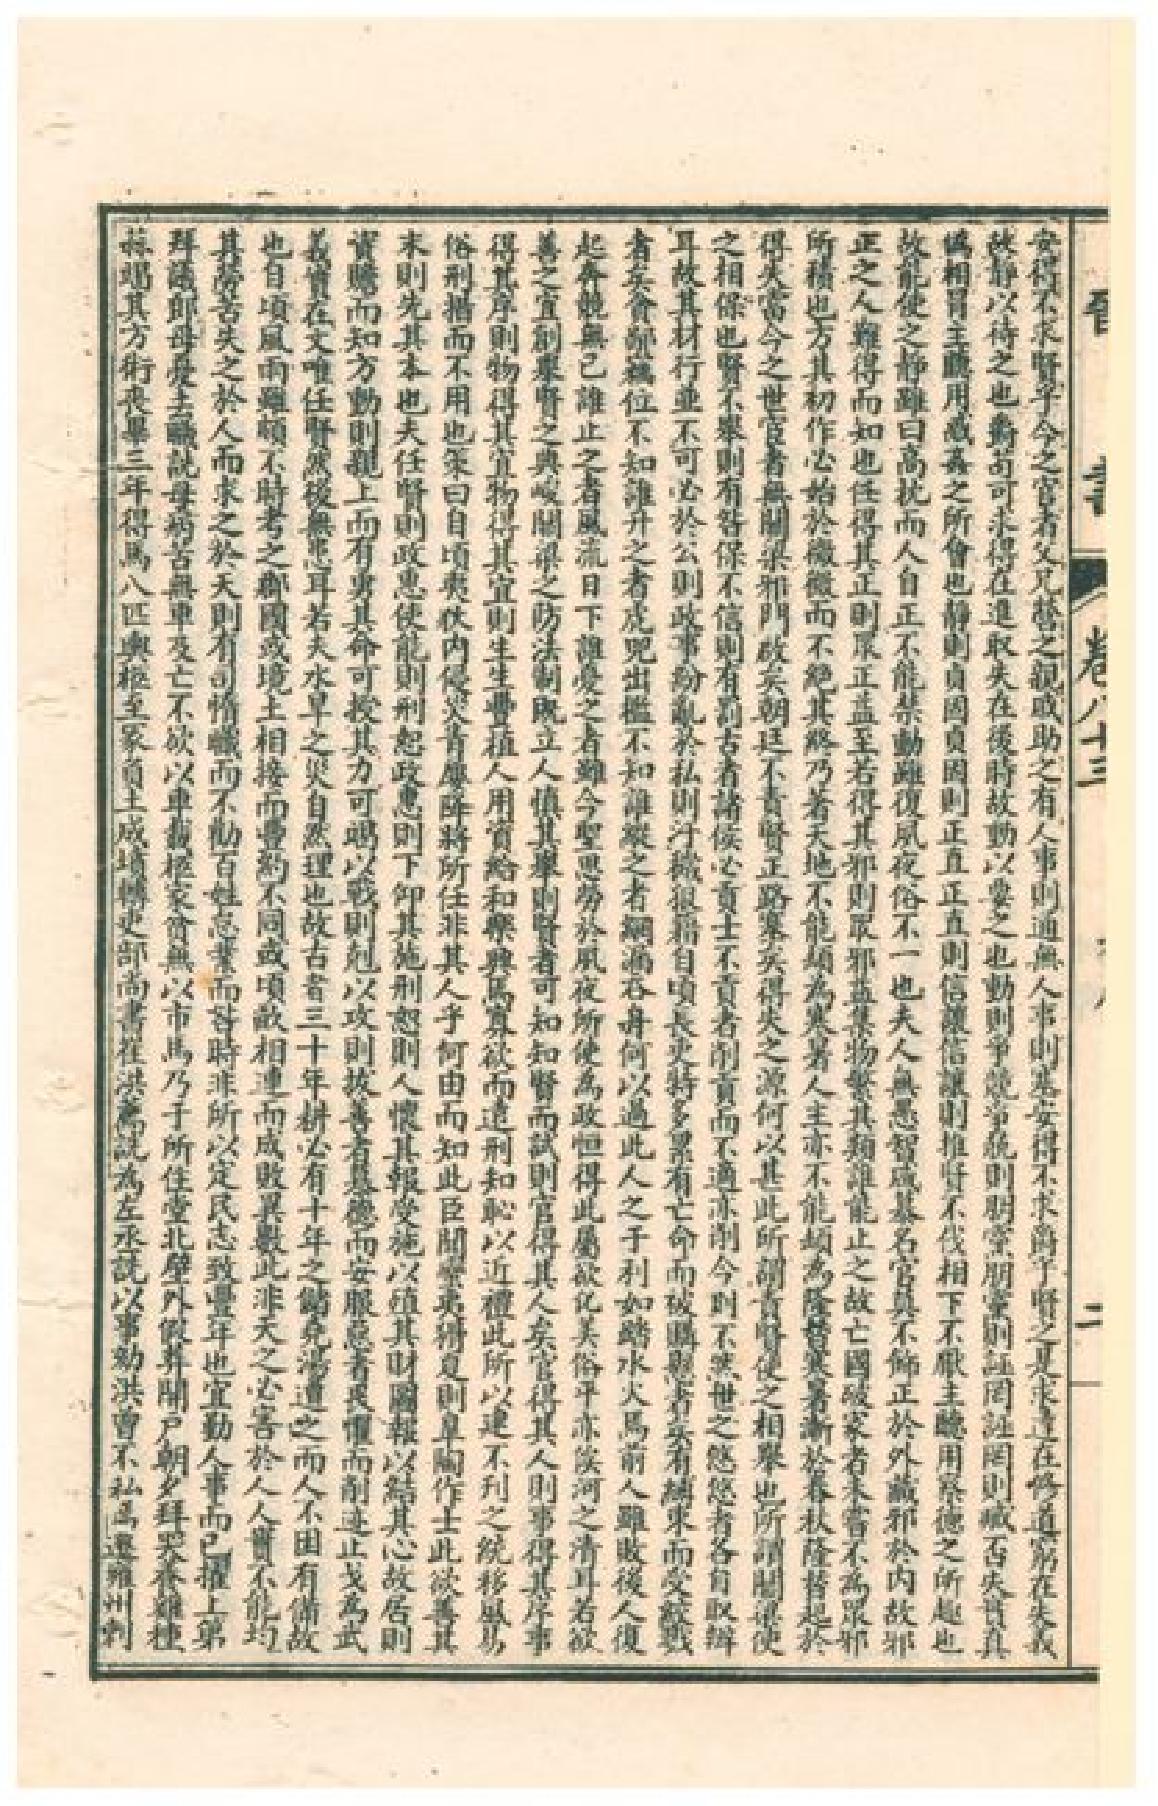 晉
書
二
安得不求賢乎今之官者父兄營之親戚助之有人事則通無人事則塞安得不求爵乎賢之是求達在修道窮在失義
故靜以待之也爵苟可求得在進取失在後時故動以要之也動則爭競爭競則朋黨朋黨則誣罔誣罔則臧否失實真
偽相冒主聽用惑姦之所會也靜則貞固貞固則正直正直則信讓信讓則推賢不伐相下不厭主聽用察德之所趣也
故能使之靜雖曰高枕而人自正不能禁動雖復夙夜俗不一也夫人無愚智咸慕名宦莫不飾正於外藏邪於內故邪
正之人難得而知也任得其正則眾正益至若得其邪則眾邪益集物繁其類誰能止之故亡國破家者未嘗不為眾邪
所積也方其初作必始於微微而不絕其終乃著天地不能頓為寒暑人主亦不能頓為隆替寒暑漸於春秋隆替起於
得失當今之世官者無關梁邪門啟矣朝廷不責賢正路塞矣得失之源何以甚此所謂責賢使之相舉也所謂關梁使
之相保也賢不舉則有咎保不信則有罰古者諸侯必貢士不貢者削貢而不適亦削今則不然世之悠悠者各自取辦
耳故其材行並不可必於公則政事紛亂於私則汙穢狼籍自頃長吏特多累有亡命而被購懸者矣有縛束而受絞戮
者矣貪鄙竊位不知誰升之者虎兕出檻不知誰縱之者網漏吞舟何以過此人之于利如蹈水火焉前人雖敗後人復
起奔競無已誰止之者風流日下誰憂之者雖今聖思勞於夙夜所使為政恒得此屬欲化美俗平亦俟河之清耳若欲
善之宜創舉賢之典峻關梁之防法制既立人慎其舉則賢者可知知賢而試則官得其人矣官得其人則事得其序事
得其序則物得其宜物得其宜則生生豐植人用資給和樂興焉寡欲而遠刑知恥以近禮此所以建不刊之統移風易
俗刑措而不用也策曰自頃夷狄內侵災眚屢降將所任非其人乎何由而知此臣聞蠻夷猾夏則皋陶作士此欲善其
末則先其本也夫任賢則政惠使能則刑恕政惠則下仰其施刑恕則人懷其報受施以殖其財圖報以結其心故居則
資贍而知方動則親上而有勇其命可授其力可竭以戰則剋以攻則拔善者慕德而安服惡者畏懼而削迹止戈為武
義實在文唯任賢然後無患耳若夫水旱之災自然理也故古者三十年耕必有十年之儲堯湯遭之而人不困有備故
也自頃風雨雖頗不時考之鄰國或境土相接而豐約不同或頃畝相連而成敗異數此非天之必害於人人實不能均
其勞苦失之於人而求之於天則有司惰職而不勸百姓怠業而咎時非所以定民志致豐年也宜勤人事而已擢上第
拜議郎母憂去職詵母病苦無車及亡不欲以車載柩家貧無以市馬乃于所住堂北壁外假葬開戶朝夕拜哭養雞種
蒜竭其方術喪畢三年得馬八匹輿柩至冢負土成墳轉吏部尚書崔洪薦詵為左丞詵以事劾洪曾不私焉遷雍州刺